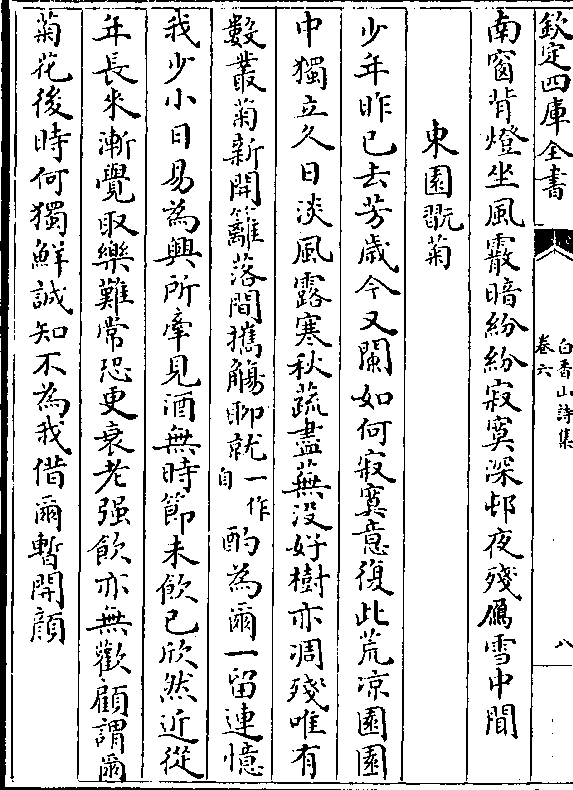 欽定四庫全書
白香山詩集
卷六
八
南窗背燈坐風霰暗紛紛寂寞深邨夜殘鴈雪中聞
東園翫菊
少年昨已去芳歲今又闌如何寂寞意復此荒凉園園
中獨立久日淡風露寒秋蔬盡蕪沒好樹亦凋殘唯有
數叢菊新開籬落間攜觴聊就一作自酌為爾一留連憶
我少小日易為興所牽見酒無時節未飲已欣然近從
年長來漸覺取樂難常恐更衰老强飲亦無歡顧謂爾
菊花後時何獨鮮誠知不為我借爾暫開顔